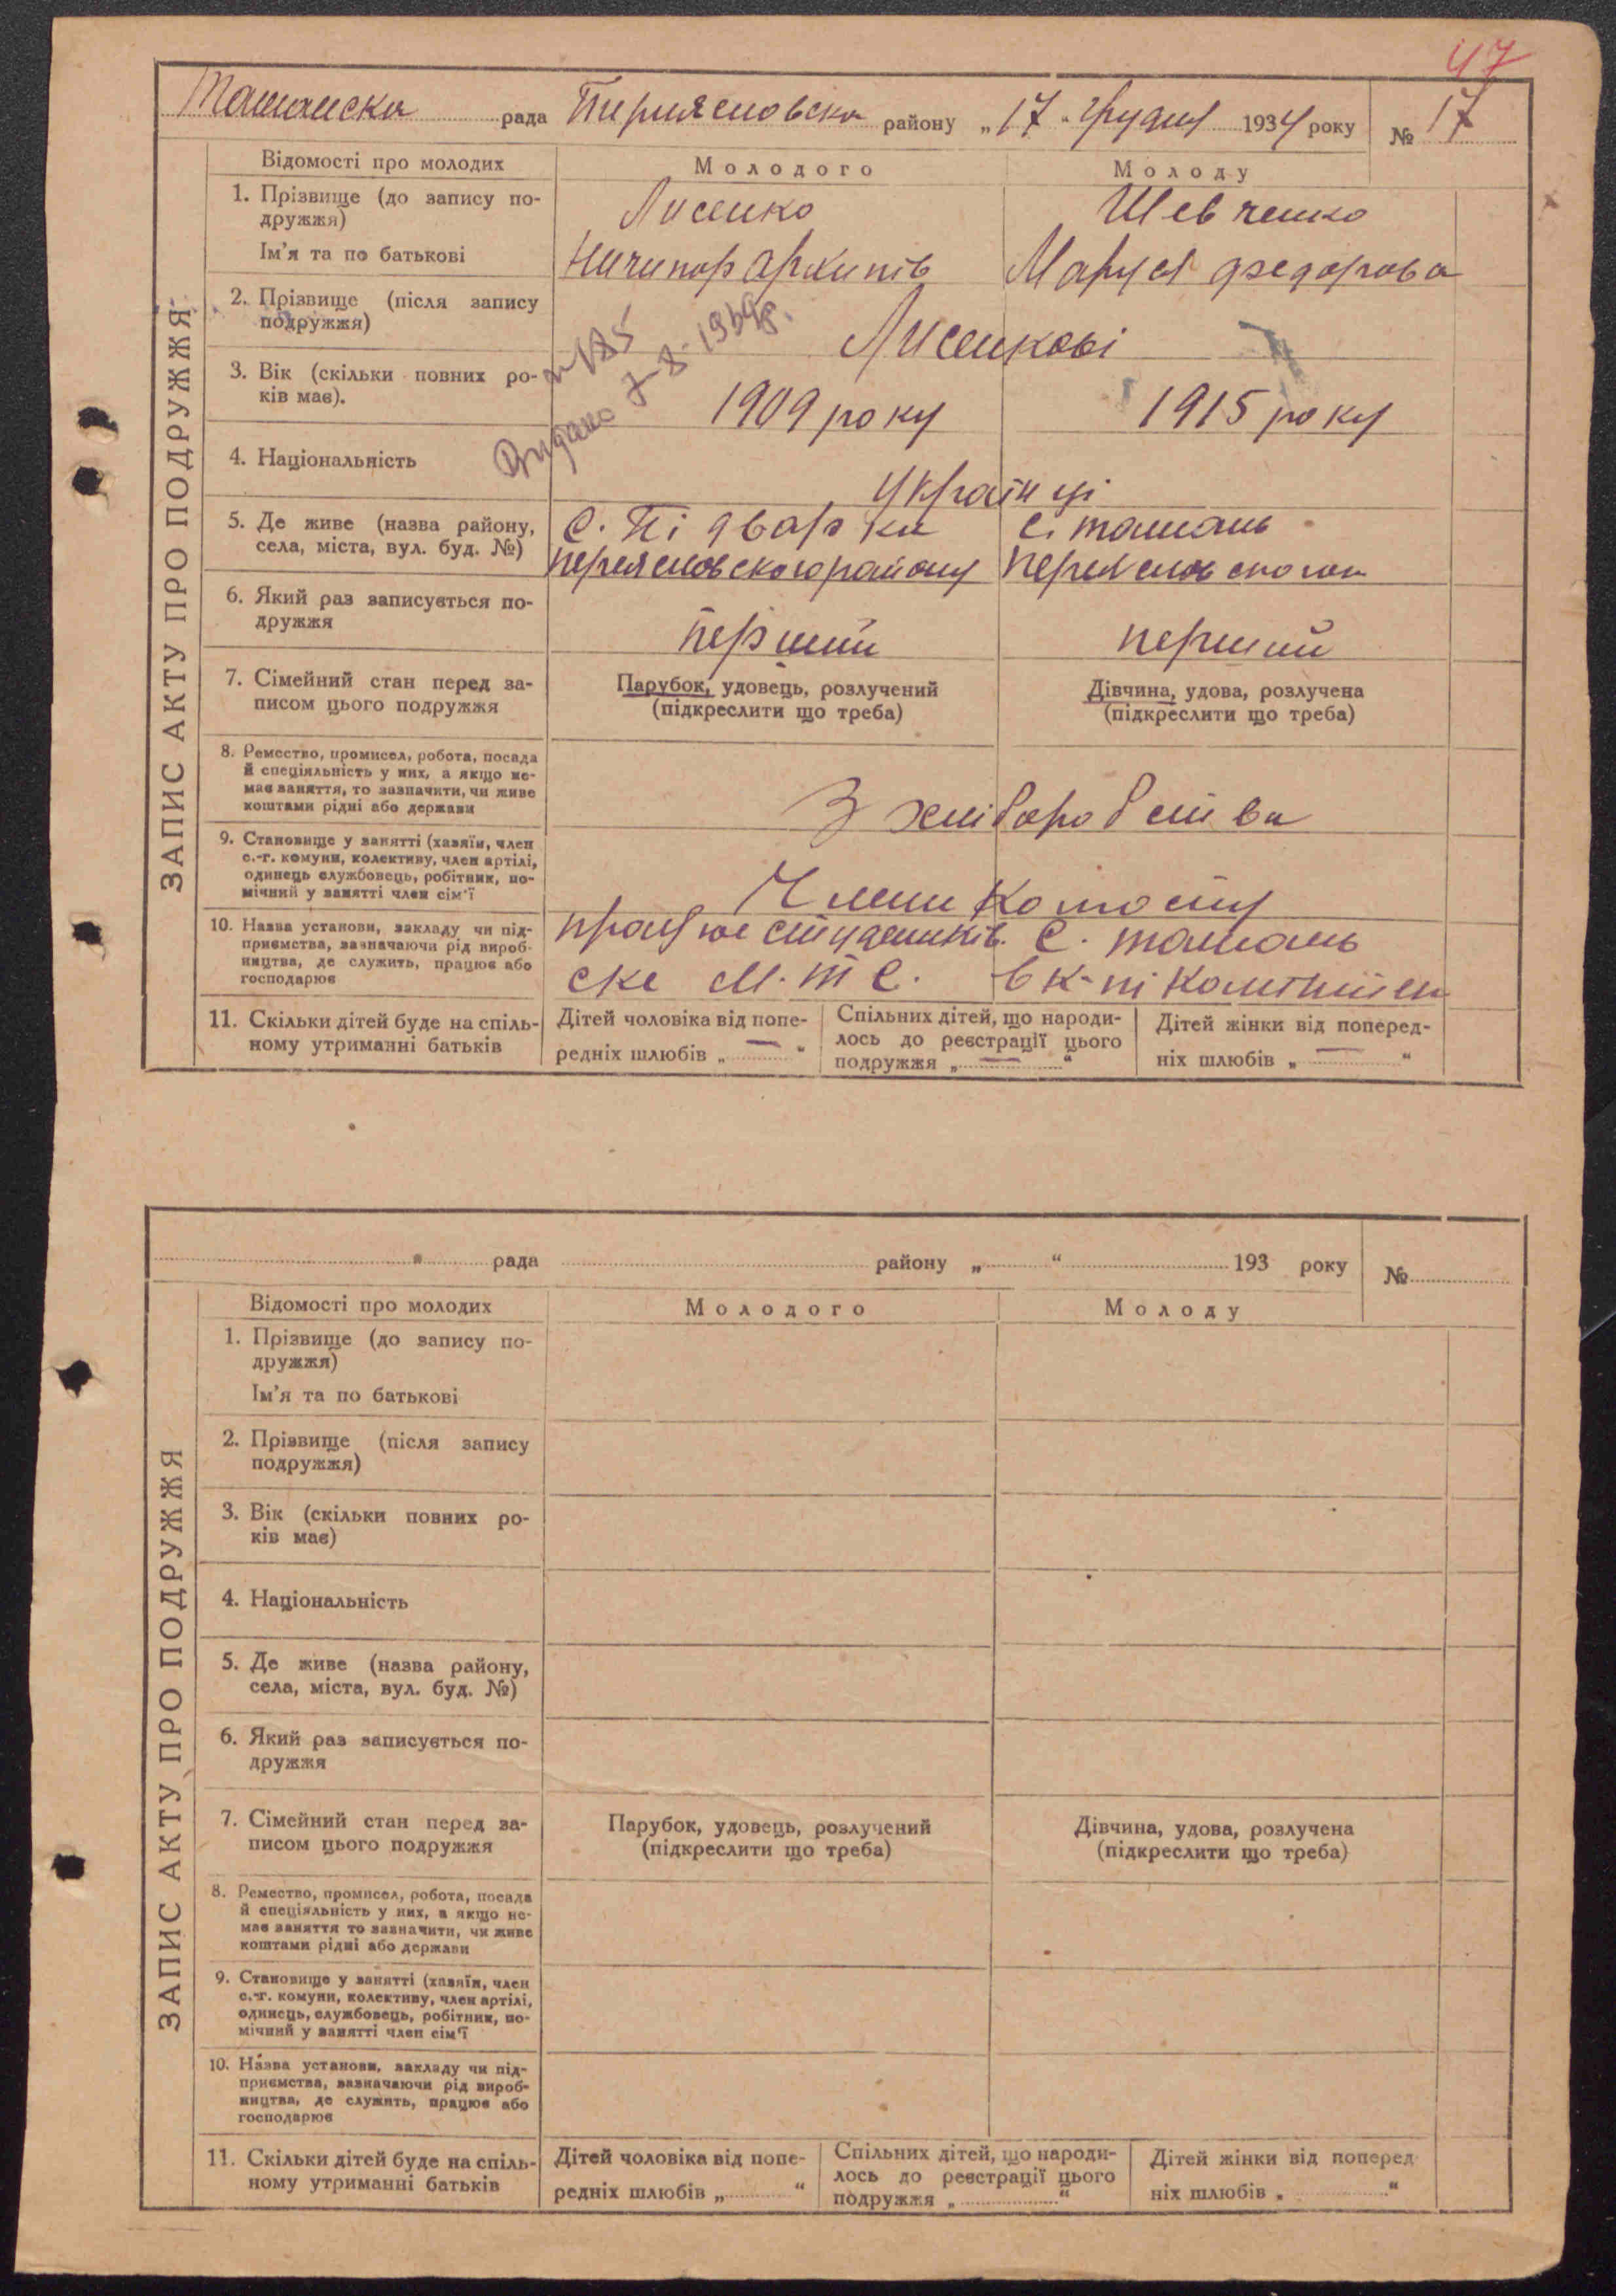 47
Ташанска рада Переяславска району „17“ грудня 1934 року № 17
ЗАПИС АКТУ ПРО ПОДРУЖЖЯ
Відомості про молодих Молодого Молоду
1. Прізвище (до запису по-
дружжя) Лисенко Шевченко
Ім'я та по батькові Ничипор Архипів Маруся Федорова
2. Прізвище (після запису
подружжя) Лисенкові
Видано 7-8-1939р.
№ 185
3. Вік (скільки повних ро-
ків має). 1909 року 1915 року
4. Національність Українці
5. Де живе (назва району, с. Підварки с. Ташань
села, міста, вул. буд. №) Переяславского району Переяславского
6. Який раз записується по-
дружжя перший перший
7. Сімейний стан перед за- Парубок, удовець, розлучений Дівчина, удова, розлучена
писом цього подружжя (підкреслити що треба) (підкреслити що треба)
8. Ремество, промисел, робота, посада
й спеціяльність у них, а якщо не-
має заняття, то зазначити, чи живе
коштами рідні або держави З хліборобства
9. Становище у занятті (хазяїн, член
с.-г. комуни, колективу, член артілі,
одинець службовець, робітник, по-
мічний у занятті член сім'ї Члени
10. Назва установи, закладу чи під- працює с. Ташань
приємства, зазначаючи рід вироб-
ництва, де служить, працює або ске М.Т.С. в к-пі
господарює
11. Скільки дітей буде на спіль- Дітей чоловіка від попе- Спільних дітей, що народи- Дітей жінки від поперед-
ному утриманні батьків редніх шлюбів „ — “ лось до реєстрації цього ніх шлюбів „ — “
подружжя „ — “
рада району „ “ 193 року №
ЗАПИС АКТУ ПРО ПОДРУЖЖЯ
Відомості про молодих Молодого Молоду
1. Прізвище (до запису по-
дружжя)
Ім'я та по батькові
2. Прізвище (після запису
подружжя)
3. Вік (скільки повних ро-
ків має)
4. Національність
5. Де живе (назва району,
села, міста, вул. буд. №)
6. Який раз записується по-
дружжя
7. Сімейний стан перед за- Парубок, удовець, розлучений Дівчина, удова, розлучена
писом цього подружжя (підкреслити що треба) (підкреслити що треба)
8. Ремество, промисел, робота, посада
й спеціяльність у них, а якщо не-
має заняття то зазначити, чи живе
коштами рідні або держави
9. Становище у занятті (хазяїн, член
с.-г. комуни, колективу, член артілі,
одинець, службовець, робітник, по-
мічний у занятті член сім'ї
10. Назва установи, закладу чи під-
приємства, зазначаючи рід вироб-
ництва, де служить, працює або
господарює
11. Скільки дітей буде на спіль- Дітей чоловіка від попе- Спільних дітей, що народи- Дітей жінки від поперед-
ному утриманні батьків редніх шлюбів „ “ лось до реєстрації цього ніх шлюбів „ “
подружжя „ “